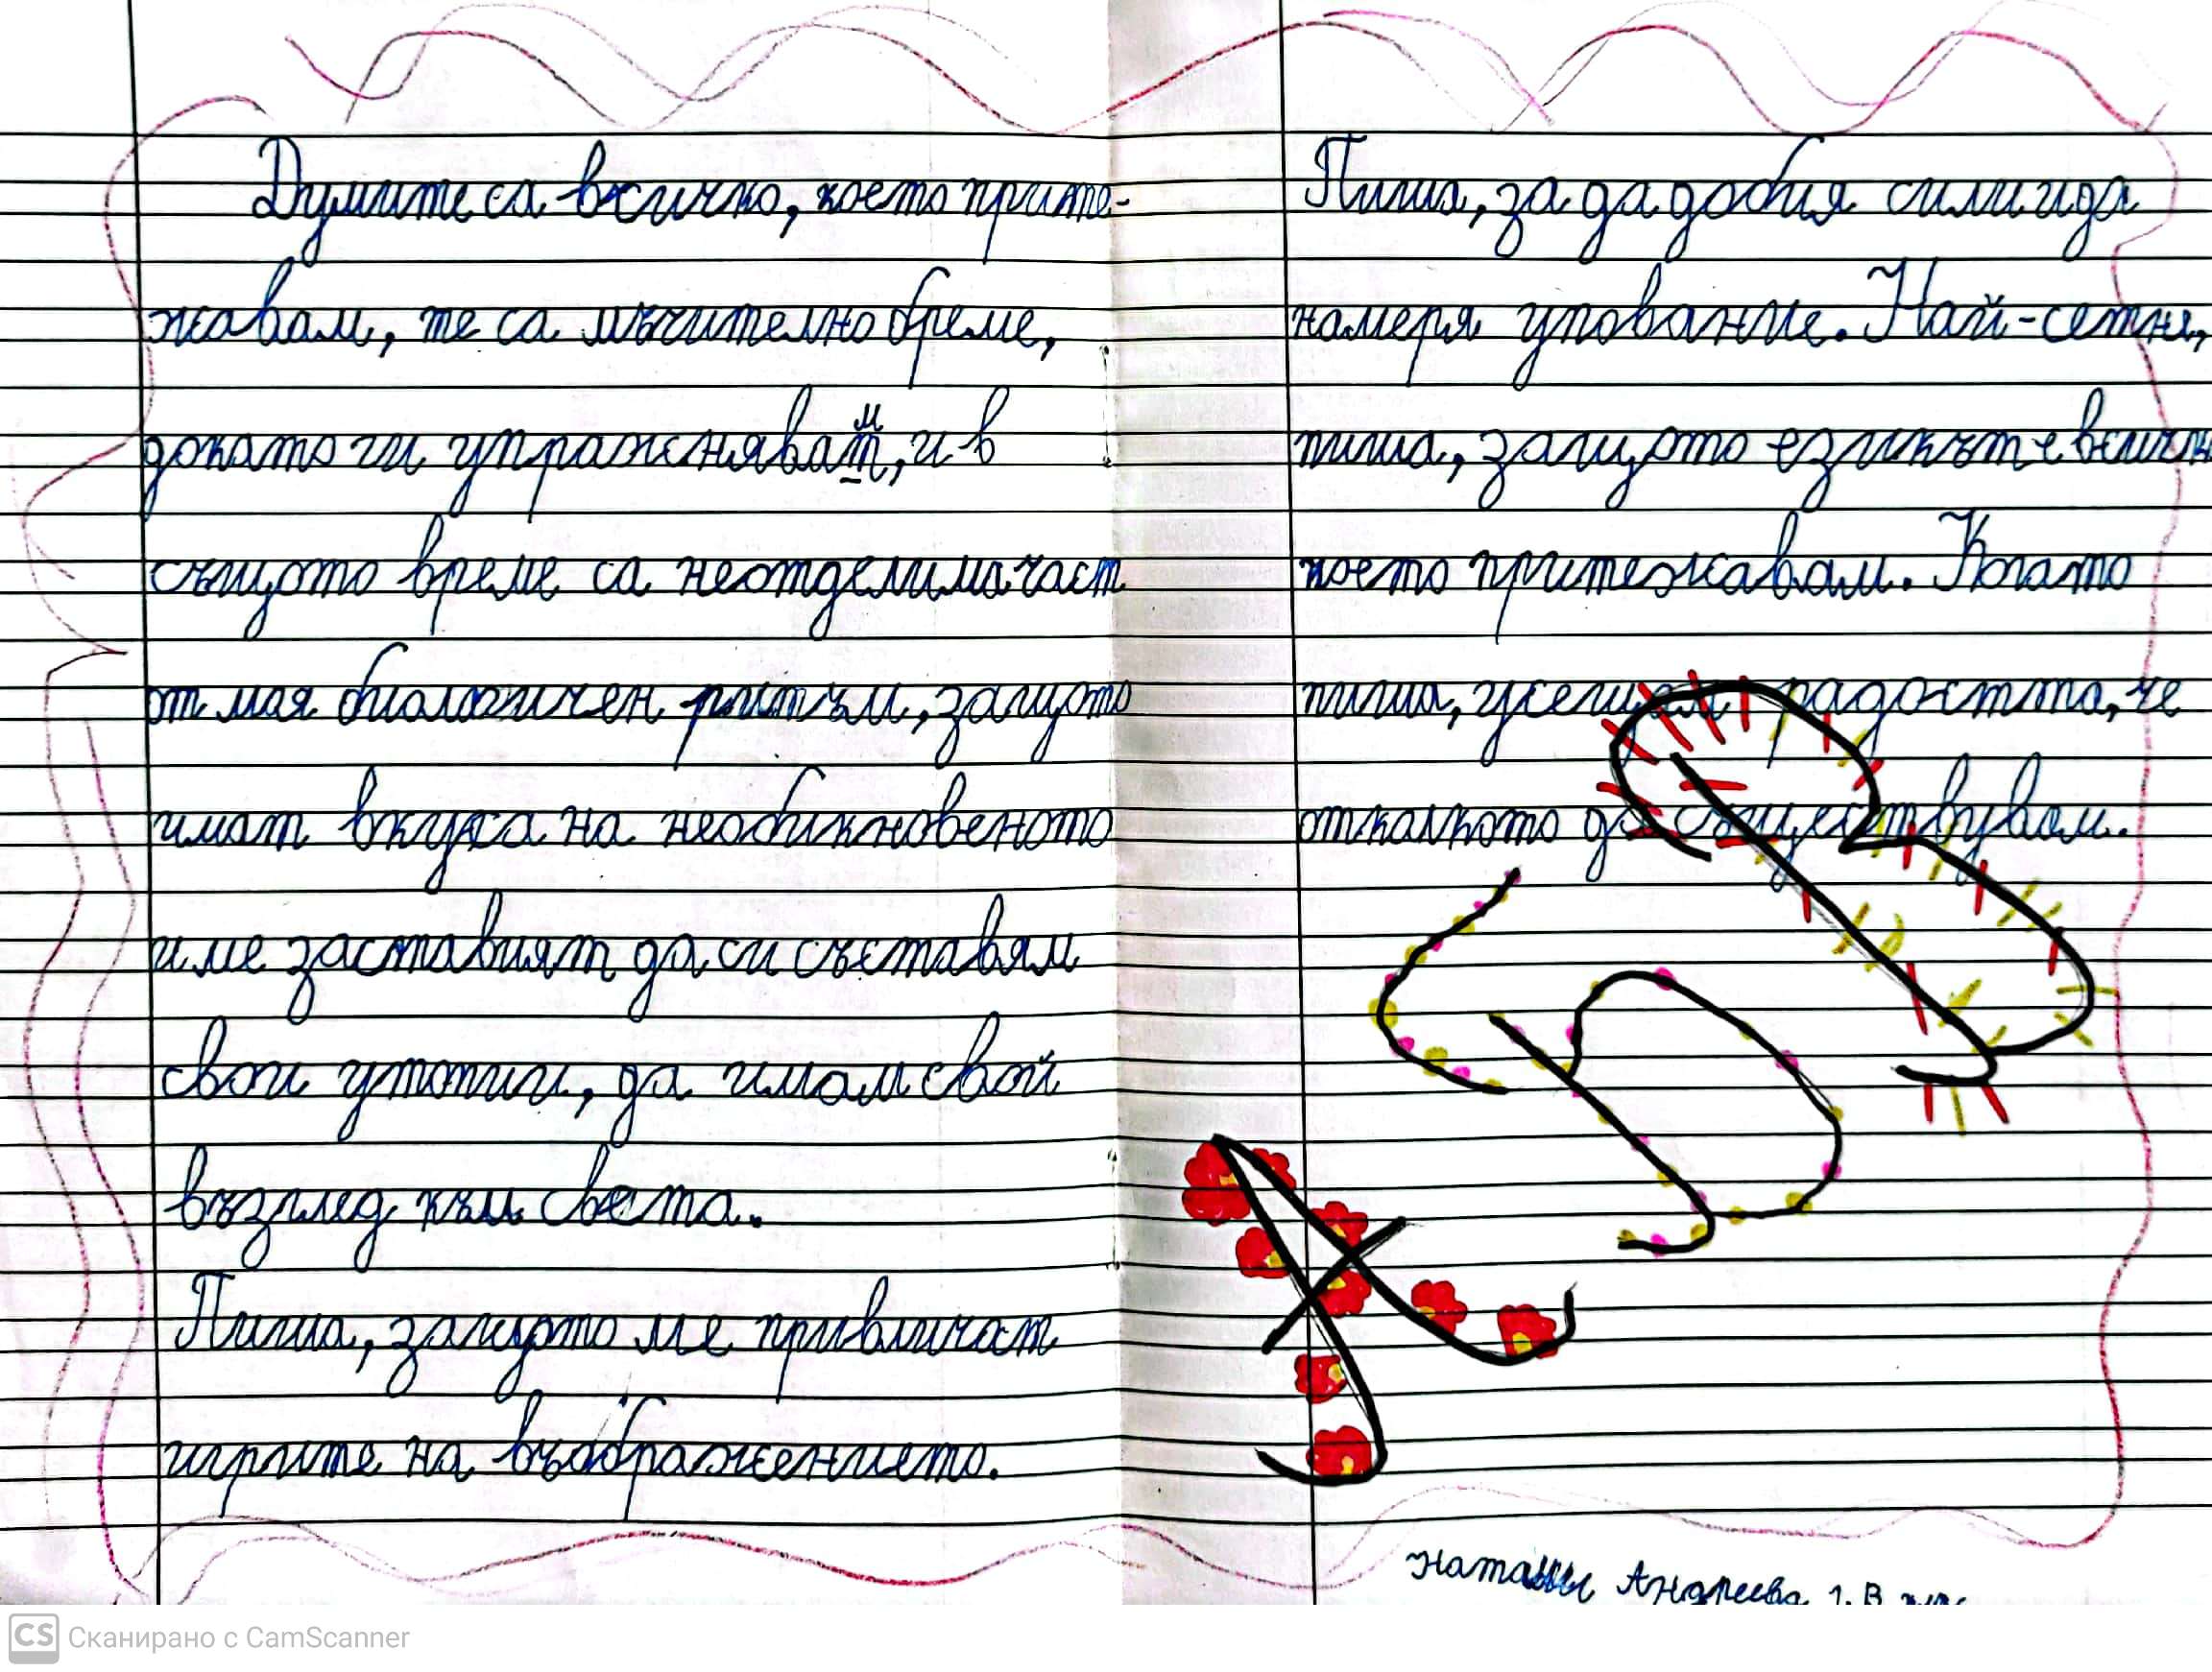 Думите са всичко, което прите-
жавам, те са мъчително бреме,
докато ги упражнявам, и в
същото време са неотделима част
от моя биологичен ритъм, защото
имат вкуса на необикновеното
и ме заставият да си съставям
свои утопии, да имам свой
възглед към света.
Пиша, защото ме привличат
игрите на въображението.
Пиша, за да добия сили и да
намеря упование. Най-сетне,
пиша, защото езикът е
което притежавам. Когато
пиша, усещам радостта, че
отколкото да съществувам.
А Б В
Андреева 1. В
CS Сканирано с CamScanner